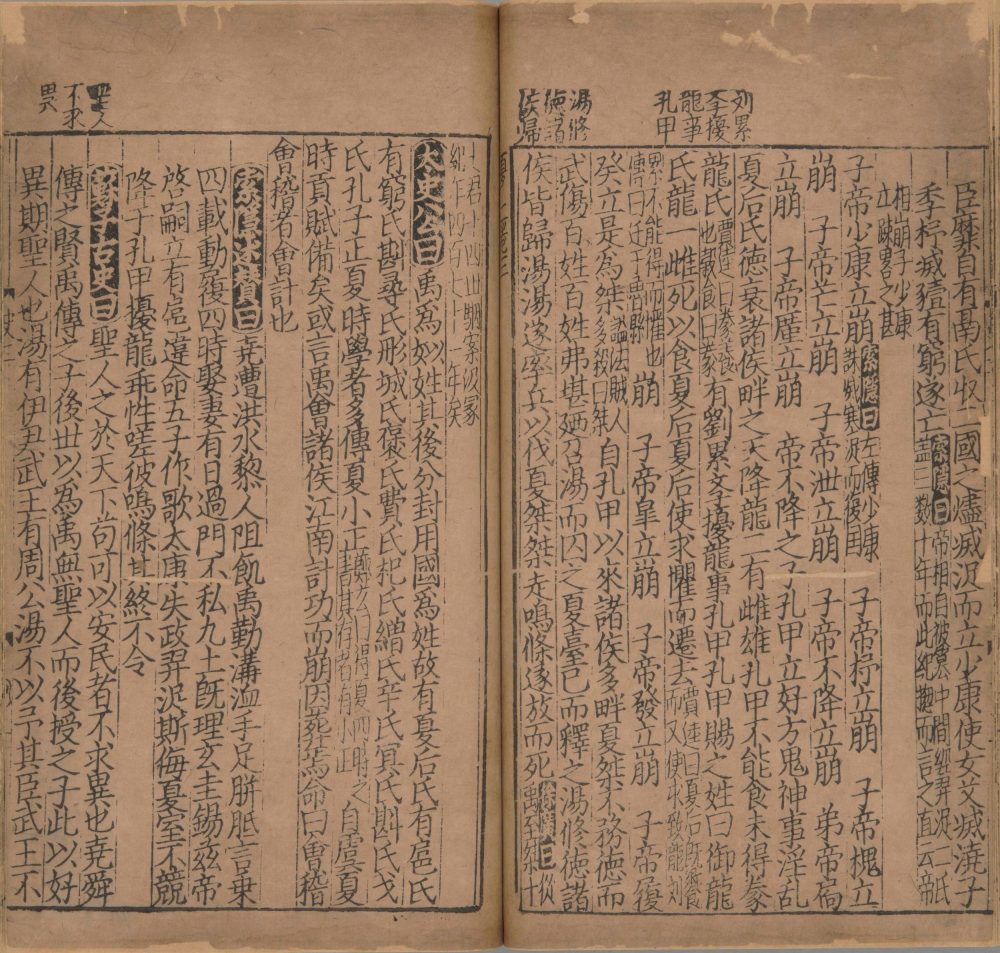 列累
学擾
龍事
孔甲
湯修
徳諸
侯帰
臣靡自有鬲氏収二國之燼㓕浞而立少康使女艾㓕澆子
季杼㓕豷有窮遂亡索隱曰帝相自被簒弒中間經羿浞二氏
蓋三數十年而此紀捴而言之直云帝
相崩子少康
立踈畧之甚
子帝少康立崩索隱曰左傳少康
誅㓕寒浞而復囯
子帝杼立崩 子帝槐立
崩 子帝芒立崩 子帝泄立崩 子帝不降立崩 弟帝扃
立崩 子帝廑立崩 帝不降之子孔甲立好方鬼神事淫乱
夏后氏徳衰諸侯畔之天降龍二有雌雄孔甲不能食未得豢
龍氏賈逵曰豢養
也穀食曰豢
有劉累文擾龍事孔甲孔甲賜之姓曰御龍
氏龍一雌死以食夏后夏后使求懼而遷去賈逵曰夏后既饗
而又使求致龍刘
累不能得而懼也
傳曰迁于魯縣
崩 子帝皐立崩 子帝發立崩 子帝履
癸立是為桀謚法賊人
多殺曰桀
自孔甲以來諸侯多畔夏桀不務徳而
武傷百姓百姓弗堪廼召湯而囚之夏臺已而釋之湯修徳諸
侯皆歸湯湯遂率兵以伐夏桀桀走鳴條遂放而死徐廣曰從
禹至桀十
七君十四世駰案汲冢
紀年四百七十一年矣
太史公曰禹為姒姓其後分封用國為姓故有夏后氏有扈氏
有窮氏斟尋氏彤城氏襃氏費氏杞氏繒氏辛氏冥氏斟氏戈
氏孔子正夏時學者多傳夏小正
自虞夏
時貢賦備矣或言禹會諸侯江南計功而崩因葬焉命曰會稽
會稽者會計也
索隱述賛曰堯遭洪水黎人阻飢禹勤溝洫手足胼胝言乗
四載動履四時娶妻有日過門不私九土既理玄圭錫兹帝
啓嗣立有扈違命五子作歌太康失政羿浞斯侮夏室不競
降于孔甲擾龍乖性嗟彼鳴條其終不令
蘇子古史曰聖人之於天下苟可以安民者不求異也堯舜
傳之賢禹傳之子後世以為禹無聖人而後授之子此以好
異期聖人也湯有伊尹武王有周公湯不以予其臣武王不
聖人
不求
異